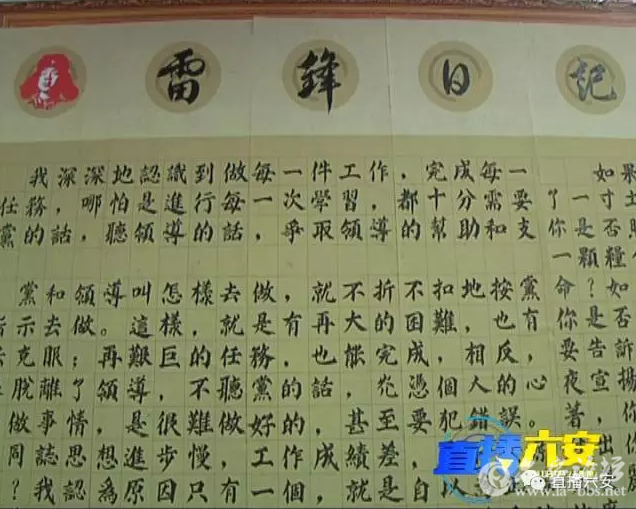 雷鋒日記
我深深地認識到做每一件工作，完成每一
任務，哪怕是進行每一次學習，都十分需要
黨的話，聽領導的話，爭取領導的幫助和支
黨和領導叫怎樣去做，就不折不扣地按黨
指示去做。這樣，就是有再大的困難，也有
去克服；再艱巨的任務，也能完成，相反，
脫離了領導，不聽黨的話，光憑個人的心
做事情，是很難做好的，甚至要犯錯誤。
同誌思想進步慢，工作成績差，
？我認爲原因只有一個，就是自以
如果
了一寸土
你是否
一顆糧
命？如
你是否
要告訴
夜宣揚
著，你
出你
直播六安
直播六安
www.la-bbs.net